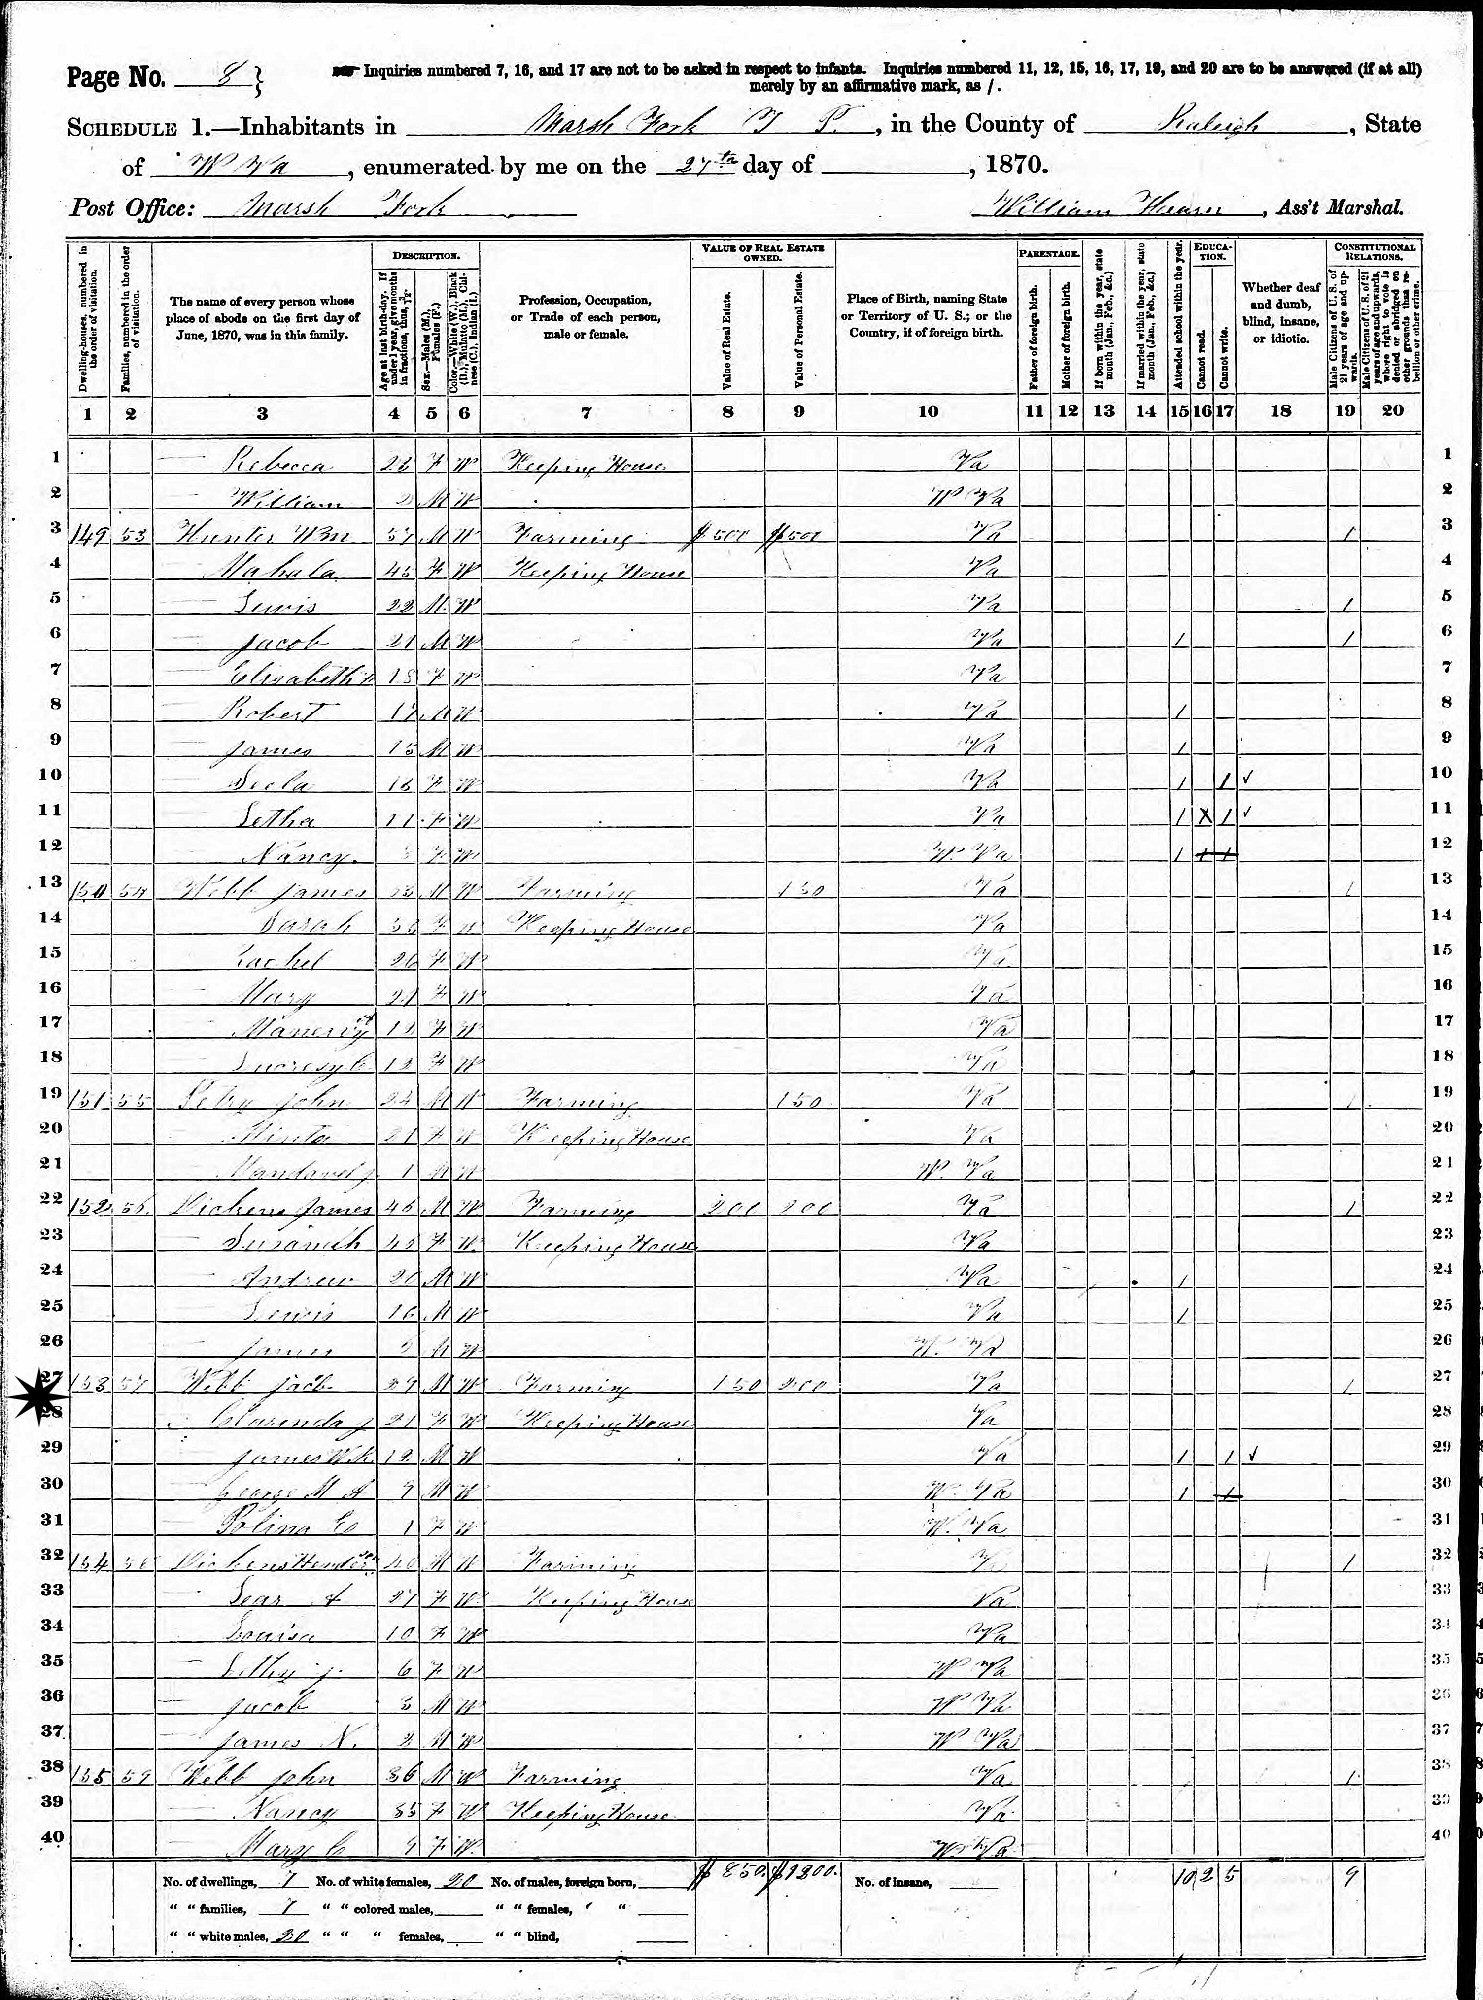 Page No. 8 } Inquiries numbered 7, 16, and 17 are not to be asked in respect to infants. Inquiries numbered 11, 12, 15, 16, 17, 19, and 20 are to be answered (if at all)
merely by an affirmative mark, as /.
SCHEDULE 1.—Inhabitants in Marsh Fork T P., in the County of Raleigh, State
of W Va, enumerated by me on the 27th day of , 1870.
Post Office: Marsh Fork William Hearn, Ass't Marshal.
Dwelling-houses, numbered in the order of visitation.
Families, numbered in the order of visitation.
The name of every person whose place of abode on the first day of June, 1870, was in this family.
DESCRIPTION.
Age at last birth-day. If under 1 year, give months in fractions, thus, 3/12.
Sex.—Males (M.), Females (F.)
Color.—White (W.), Black (B.), Mulatto (M.), Chinese (C.), Indian (I.)
Profession, Occupation, or Trade of each person, male or female.
VALUE OF REAL ESTATE OWNED.
Value of Real Estate.
Value of Personal Estate.
Place of Birth, naming State or Territory of U. S.; or the Country, if of foreign birth.
PARENTAGE.
Father of foreign birth.
Mother of foreign birth.
If born within the year, state month (Jan., Feb., &c.)
If married within the year, state month (Jan., Feb., &c.)
EDUCATION.
Attended school within the year.
Cannot read.
Cannot write.
Whether deaf and dumb, blind, insane, or idiotic.
CONSTITUTIONAL RELATIONS.
Male Citizens of U. S. of 21 years of age and upwards.
Male Citizens of U. S. of 21 years of age and upwards, whose right to vote is denied or abridged on other grounds than rebellion or other crime.
1 2 3 4 5 6 7 8 9 10 11 12 13 14 15 16 17 18 19 20
1 — Rebecca F W Keeping House Va 1
2 — William M W W Va 2
3 149 53 Hunter Wm 57 M W Farming $500 $500 Va 1 3
4 — Mahala 45 F W Keeping House Va 4
5 — Lewis 22 M W Va 1 5
6 — Jacob 21 M W Va 1 1 6
7 — Elisabeth 18 F W Va 7
8 — Robert 17 M W Va 1 8
9 — James 15 M W Va 1 9
10 — F W Va 1 1 ✓ 10
11 — Letha 11 F W Va 1 X 1 ✓ 11
12 — Nancy F W W. Va 1 1 1 12
13 150 54 Webb James M W Farming 150 Va 1 13
14 Sarah F W Keeping House Va 14
15 — 26 F W Va 15
16 — Mary 21 F W Va 16
17 — F W Va 17
18 — 12 F W Va 18
19 151 55 John 24 M W Farming 150 Va 1 19
20 — Minta 21 F W Keeping House Va 20
21 — 1 M W W. Va 21
22 152 56 Dickens James 46 M W Farming 200 200 Va 1 22
23 — 45 F W Keeping House Va 23
24 — Andrew 20 M W Va 1 24
25 — Lewis 16 M W Va 1 25
26 — James M W W. Va 26
27 153 57 Webb Jacb M W Farming 150 200 Va 1 27
28 — Clarenda J 21 F W Keeping House Va 28
29 — James W.R. 12 M W Va 1 1 ✓ 29
30 — George M A 9 M W W. Va 1 1 30
31 — Polina E 1 F W W. Va 31
32 154 58 Dickens Henderson M W Farming Va 1 32
33 — Lear A 27 F W Keeping House Va 33
34 — Louisa 10 F W Va 34
35 — J. 6 F W W Va 35
36 — Jacob M W W Va 36
37 — James N. 2 M W W Va 37
38 155 59 Webb John 86 M W Farming Va 1 38
39 — Nancy 85 F W Keeping House Va 39
40 — Mary C 9 F W W. Va 40
No. of dwellings, 7 No. of white females, 20 No. of males, foreign born, $850. $1200. No. of insane, 10 2 5 9
" " families, 7 " " colored males, " " females, " "
" " white males, 20 " " " females, " " blind,